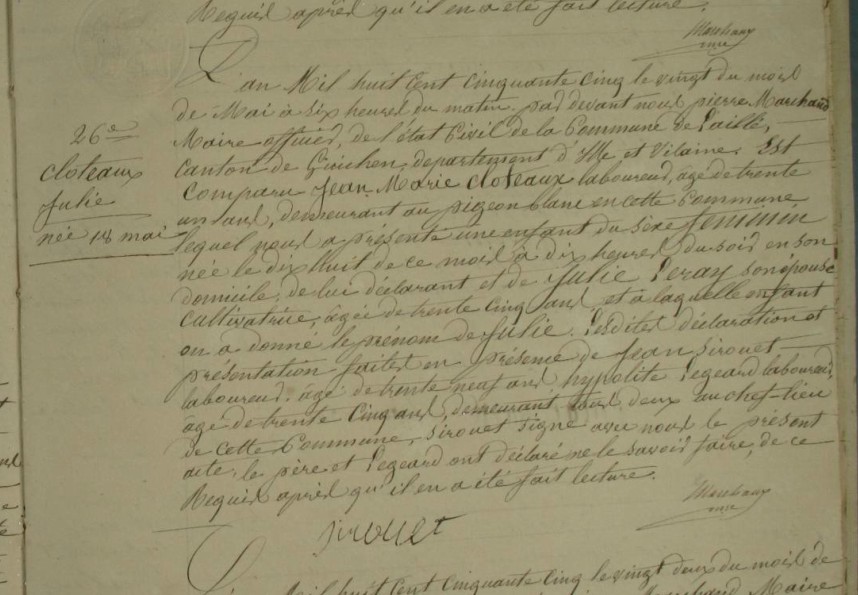 Requis après qu'il en a été fait lecture.
Marchand
maire
L'an Mil huit cent cinquante cinq le vingt du mois
de Mai à six heures du matin. par devant nous pierre Marchand
Maire officier, de l'état Civil de la Commune de Laillé,
canton de Guichen, departement d'Ille et Vilaine. Est
Comparu Jean Marie Cloteaux laboureur, âgé de trente
un ans, demeurant au pigeon blanc en cette Commune,
lequel nous a présenté une enfant du sexe feminin
née le dix huit de ce mois à dix heures du soir en son
domicile, de lui déclarant et de Julie Peray son épouse
cultivatrice, âgée de trente cinq ans et à laquelle enfant
on a donné le prénom de Julie. Lesdites déclaration et
présentation faites en présence de Jean Sirouet
laboureur. âgé de trente neuf ans hypolite Legeard laboureur,
âgé de trente cinq ans, demeurant tous deux au chef-lieu
de cette Commune, Sirouet signe avec nous le présent
acte, le père et Legeard ont déclaré ne le savoir faire, de ce
Requis après qu'il en a été fait lecture.
26e
cloteaux
Julie
née 18 mai
Marchand
maire
Sirouet
L'an Mil huit Cent Cinquante Cinq le vingt deux du mois de
Marchand Maire